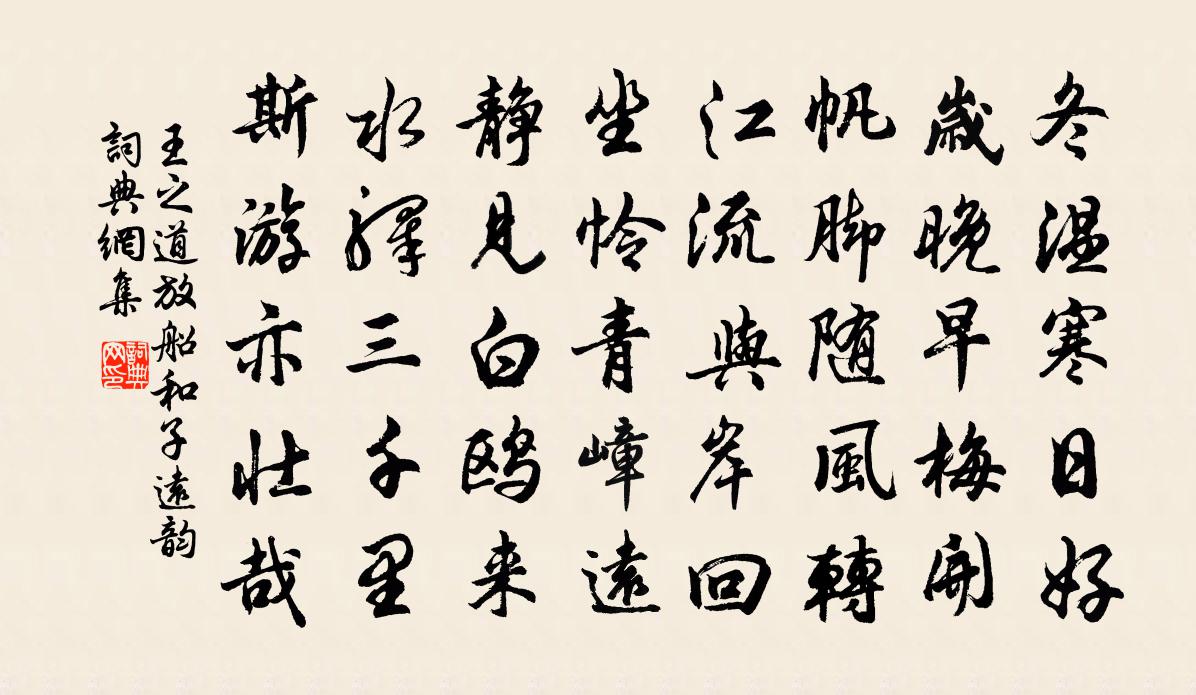 冬温寒日好
歲晚早梅開
帆脚随風轉
江流與岸回
坐怜青嶂遠
静見白鸥来
水驛三千里
斯游亦壮哉
王之道放船和子遠韵
詞典網集
詞典网印